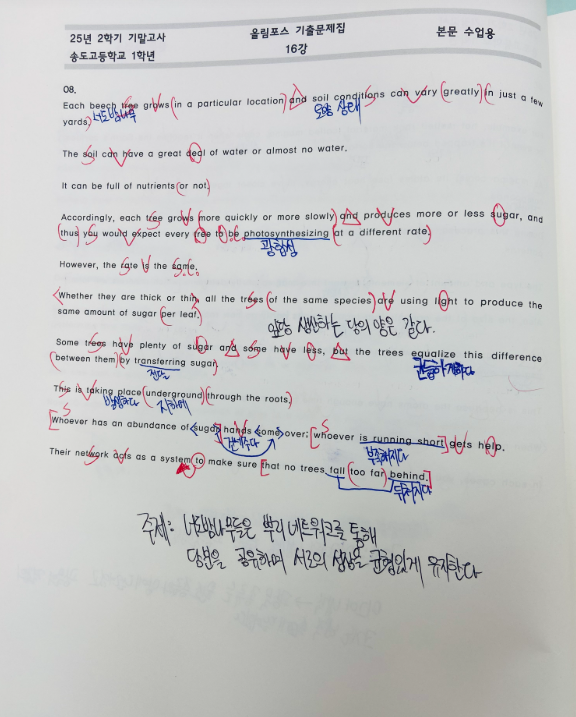 25년 2학기 기말고사
송도고등학교 1학년
올림포스 기출문제집
16강
본문 수업용
08.
Each beech tree grows in a particular location and soil conditions can vary greatly in just a few
yards.
너도밤나무
토양 상태
The soil can have a great deal of water or almost no water.
It can be full of nutrients or not.
Accordingly, each tree grows more quickly or more slowly and produces more or less sugar, and
thus you would expect every tree to be photosynthesizing at a different rate.
광합성
However, the rate is the same.
Whether they are thick or thin, all the trees of the same species are using light to produce the
same amount of sugar per leaf.
잎당 생산하는 당의 양은 같다.
Some trees have plenty of sugar and some have less, but the trees equalize this difference
between them by transferring sugar.
전달
균등하게하다
This is taking place underground through the roots.
발생하다
지하에
Whoever has an abundance of sugar hands some over; whoever is running short gets help.
건네주다
부족해지다
Their network acts as a system to make sure that no trees fall too far behind.
뒤처지다
주제: 너도밤나무들은 뿌리 네트워크를 통해
당분을 공유하며 서로의 성장을 균형있게 유지한다